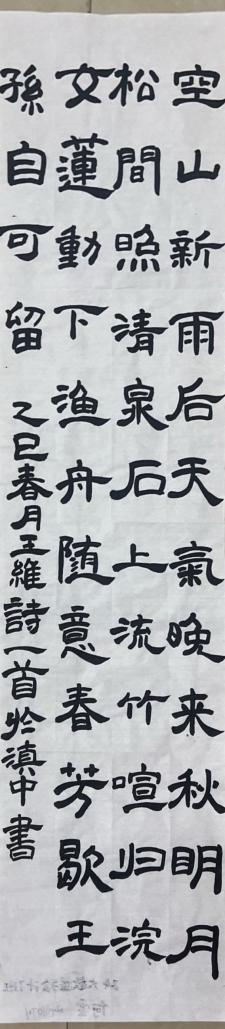 空山新雨后天氣晚来秋明月
松間照清泉石上流竹喧归浣
女蓮動下漁舟随意春芳歇王
孫自可留
乙巳春月王維詩一首於滇中書